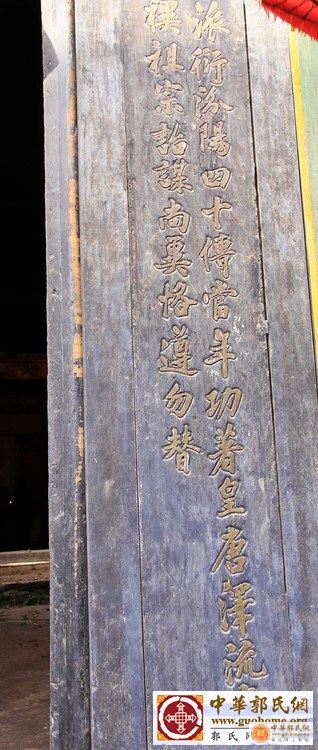 派衍汾陽四十傳當年功著皇唐澤流
禩祖宗詒謀尚冀恪遵勿替
中華郭氏網
www.guohome.org
郭氏